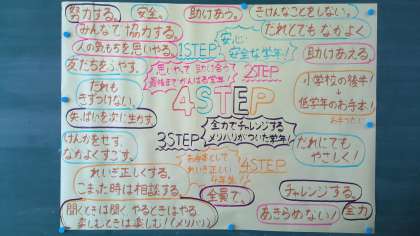 努力する。
安全。
助けあう。
きけんなことをしない。
みんなで協力する。
だれとでもなかよく
人の気もちを思いやる。
1STEP
安心
安全な学年!!
助けあえる。
友だちをふやす。
思いやって助け合って
最後までがんばる学年!
2STEP
小学校の後半
↓
低学年のお手本!
だれも
きずつけない。
4STEP
失ぱいを次に生かす。
3STEP
全力でチャレンジする
メリハリがついた学年!
けんかをせず、
なかよくすごす。
だれにでも
やさしく!
お手本として
4STEP
れいぎ正しくする。
こまった時は相談する。
全員で。
チャレンジする。
聞くときは聞く やるときはやる
楽しむときは楽しむ!(メリハリ)
あきらめない!
全力